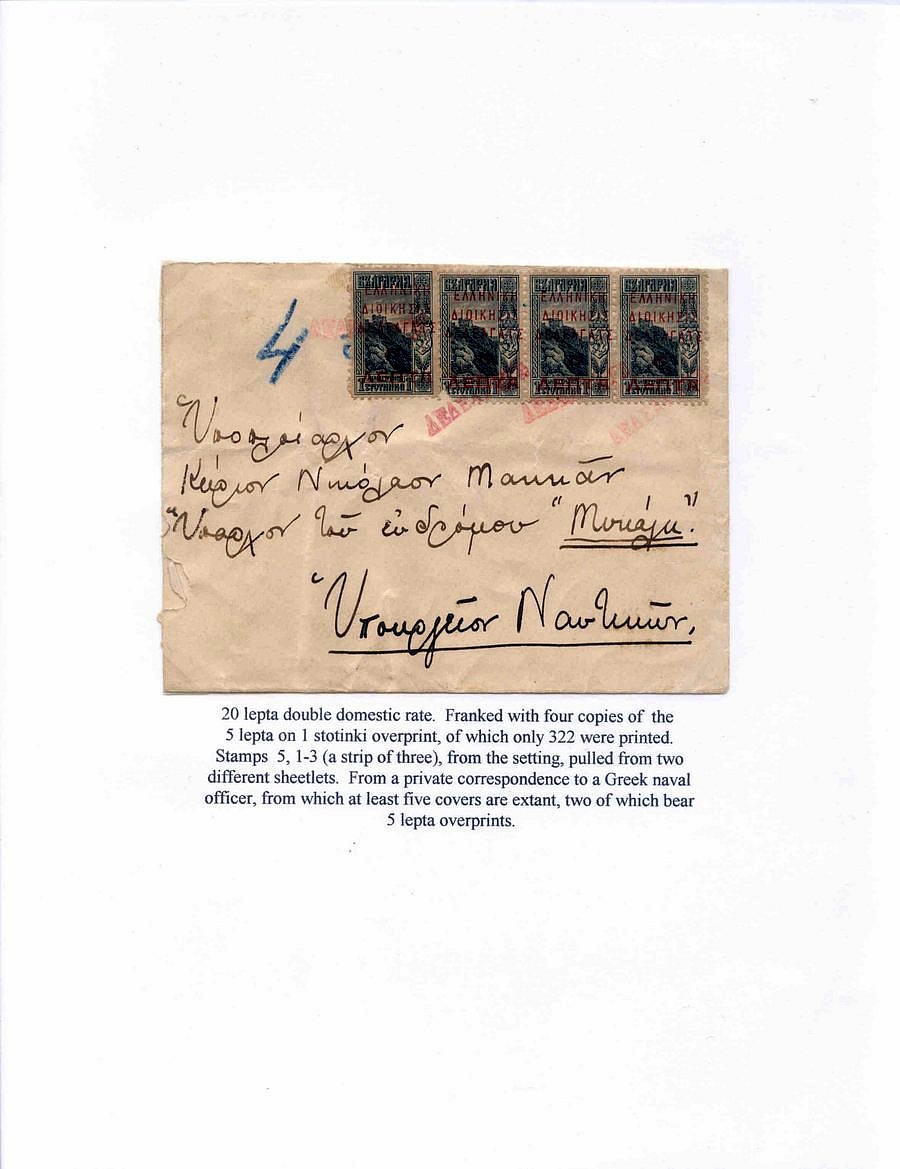 БЪЛГАРИЯ БЪЛГАРИЯ БЪЛГАРИЯ БЪЛГАРИЯ
ΕΛΛΗΝΙΚΗ ΕΛΛΗΝΙΚΗ ΕΛΛΗΝΙΚΗ ΕΛΛΗΝΙΚΗ
ΔΙΟΙΚΗΣΙΣ ΔΙΟΙΚΗΣΙΣ ΔΙΟΙΚΗΣΙΣ ΔΙΟΙΚΗΣΙΣ
ΛΕΠΤΑ ΛΕΠΤΑ ΛΕΠΤΑ ΛΕΠΤΑ
1 СТОТИНКА 1 1 СТОТИНКА 1 1 СТОТИНКА 1 1 СТОТИНКА 1
4
Ὑποπλοίαρχον
Κύριον Νικόλαον
Ὕπαρχον τοῦ εὐδρόμου "Μυκάλη".
Ὑπουργεῖον Ναυτικῶν,
20 lepta double domestic rate. Franked with four copies of the
5 lepta on 1 stotinki overprint, of which only 322 were printed.
Stamps 5, 1-3 (a strip of three), from the setting, pulled from two
different sheetlets. From a private correspondence to a Greek naval
officer, from which at least five covers are extant, two of which bear
5 lepta overprints.